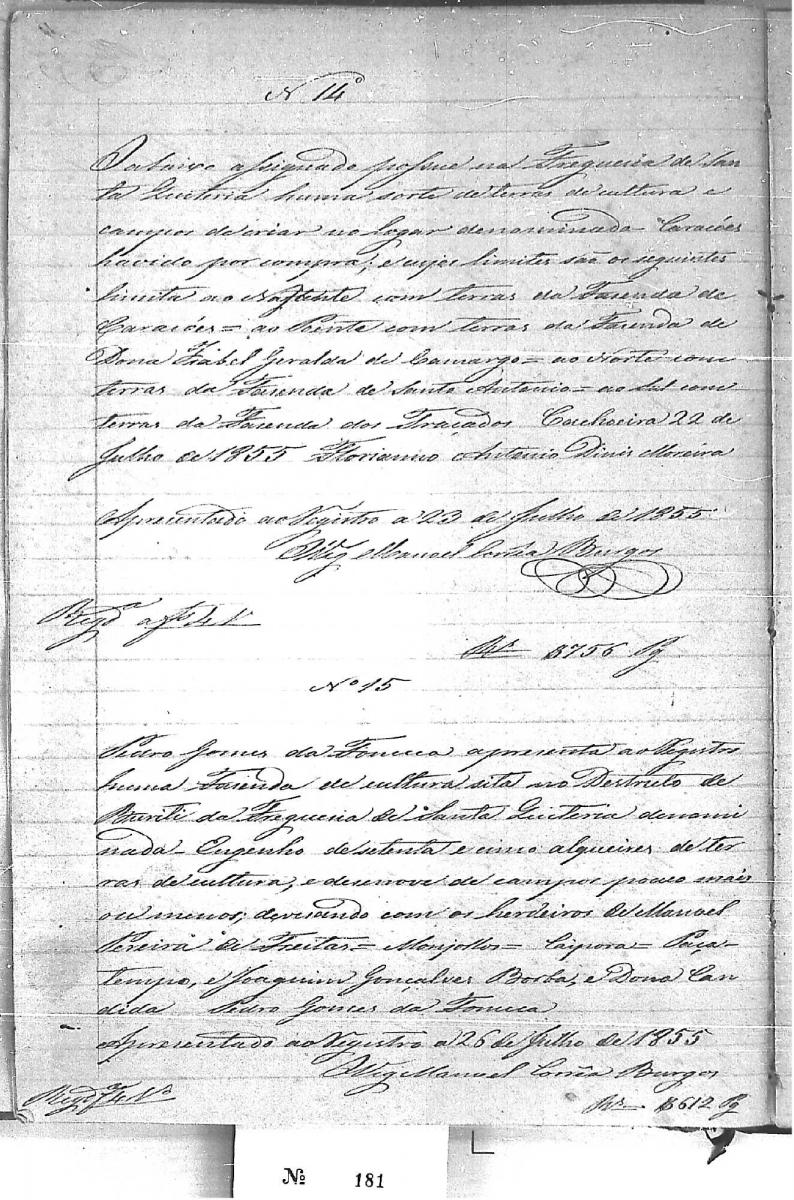 N 14º
O abaixo assignado possue na Freguezia de San
ta Quiteria huma sorte de terras de cultura e
campos de criar no logar denominado Caraióes
havido por compra; e cujos limites são os seguintes
limita ao Nascente com terras da Fazenda de
Caraióes = ao Poente com terras da Fazenda de
Dona Izabel Geralda de Camargo = ao Norte com
terras da Fazenda de Santo Antonio = ao Sul com
terras da Fazenda dos Traçados Cachoeira 22 de
Julho de 1855 Florianno Antonio Dinis Moreira
Apresentado ao Registro a 23 de Julho de 1855
O Vig Manoel Corrêa Burgos
Regdª a fs 4 V
Rs $756 Pg
Nº 15
Pedro Gomes da Fonceca apresenta ao Registro
huma Fazenda de cultura sita no Destricto de
Buriti da Freguezia de Santa Quiteria denomi
nada Engenho de setenta e cinco alqueires de ter
ras de cultura, e desenove de campos pouco mais
ou menos; devisando com os herdeiros de Manoel
Pereira de Freitas = Monjollos = Caipora = Paça-
tempo, e Joaquim Gonçalves Borba, e Dona Can
dida Pedro Gomes da Fonceca
Apresentado ao Registro a 26 de Julho de 1855
O Vig Manoel Corrêa Burgos
Regdª fs 4 V
Rs $612 Pg
№ 181